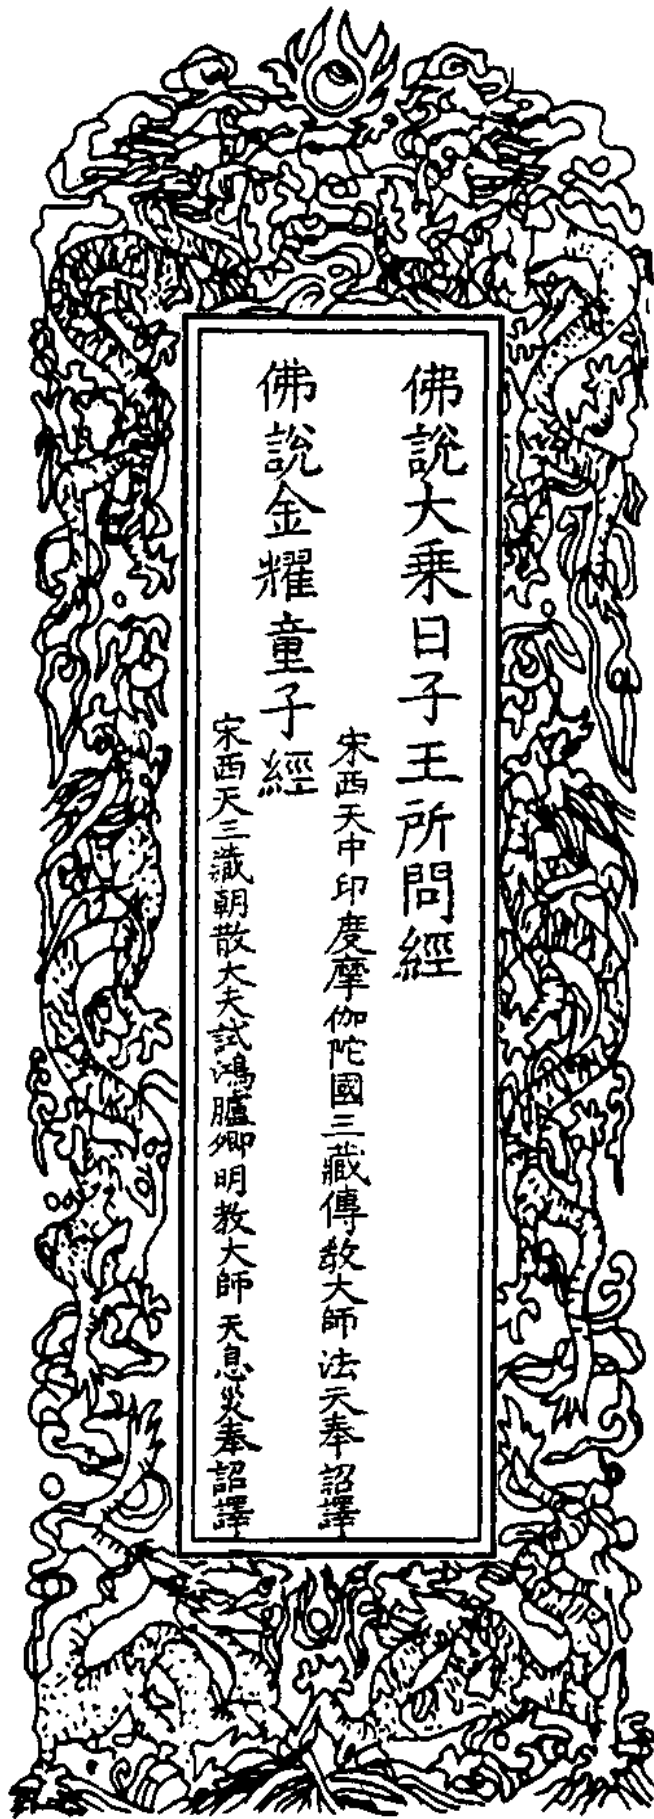 佛說大乗日子王所問經
宋西天中印度摩伽陀國三藏傳教大師法天奉詔譯
佛說金耀童子經
宋西天三藏朝散大夫試鴻臚卿明教大師天息災奉詔譯